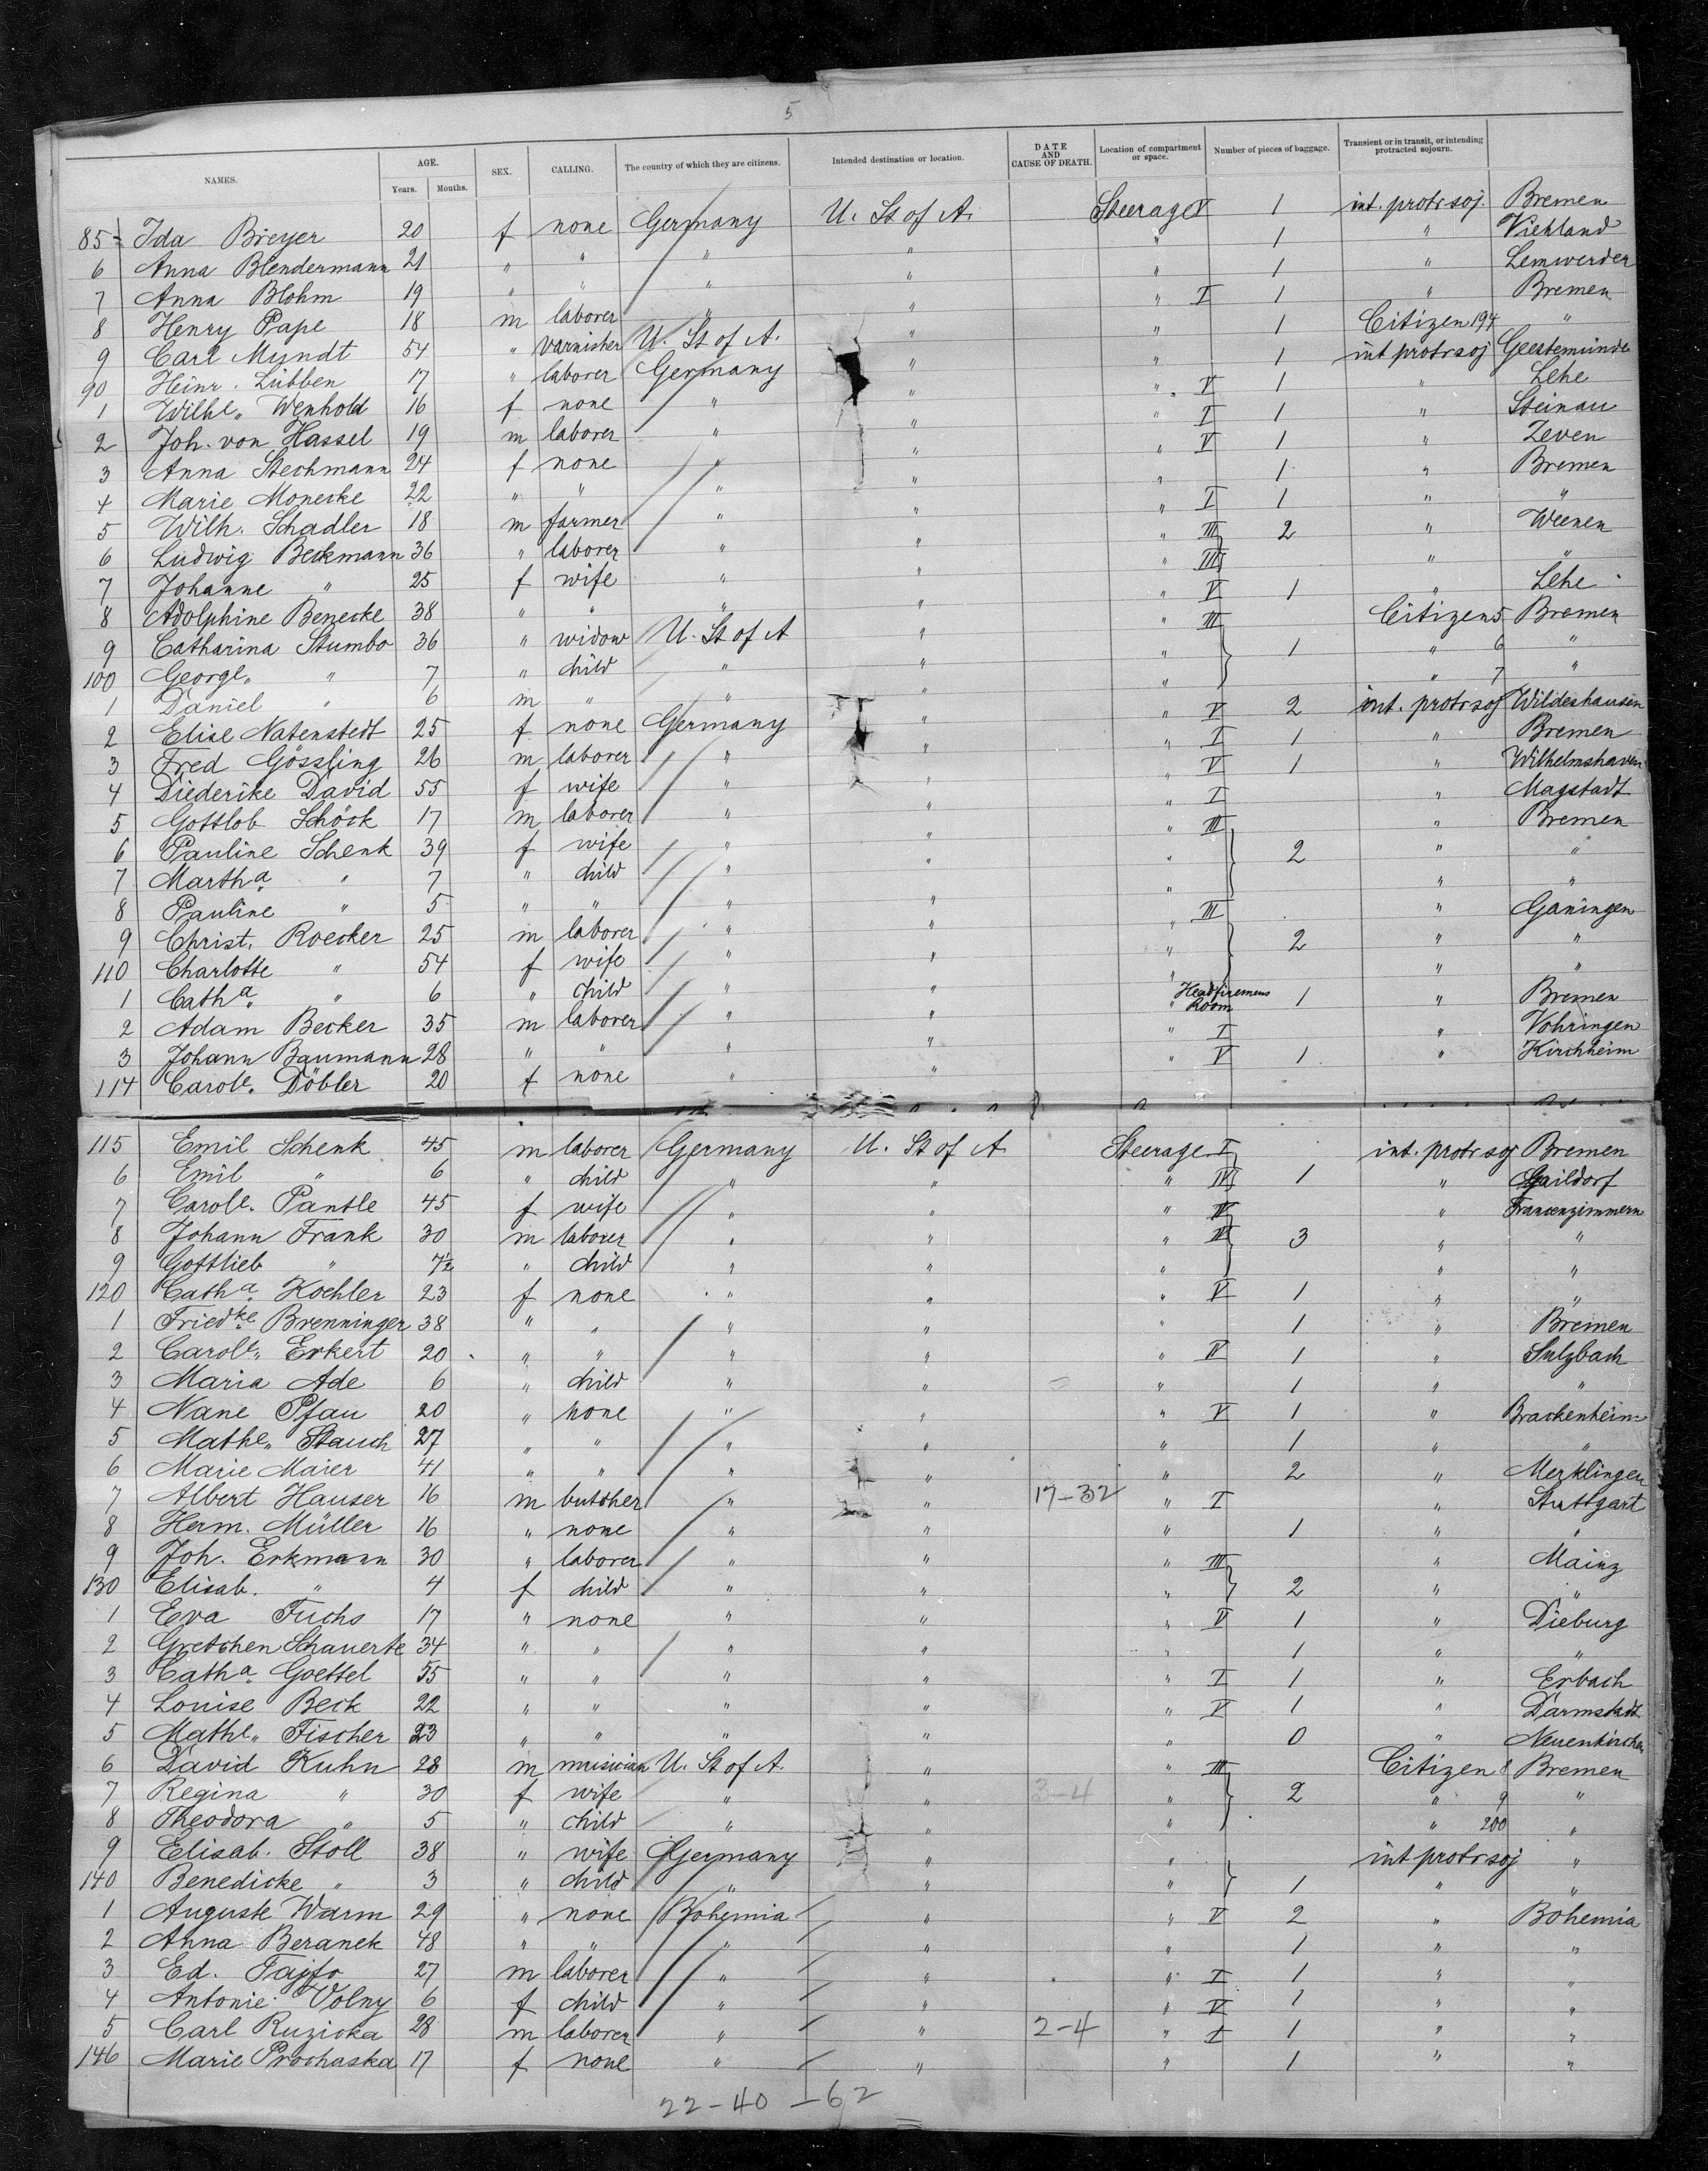 5
NAMES. AGE. Years. Months. SEX. CALLING. The country of which they are citizens. Intended destination or location. DATE AND CAUSE OF DEATH. Location of compartment or space. Number of pieces of baggage. Transient or in transit, or intending protracted sojourn.
85 Ida Breyer 20 f none Germany U. St of A. Steerage V 1 int. protr soj. Bremen
6 Anna Blendermann 21 " " " " " 1 " Viehland
7 Anna Blohm 19 " " " " " 1 " Lemwerder
8 Henry Pape 18 m laborer " " " I 1 " Bremen
9 Carl Myndt 54 " varnisher U. St of A. " " 1 Citizen 194 "
90 Heinr. Lübben 17 " laborer Germany " " 1 int protr soj Geestemünde
1 Wilhe. Wenhold 16 f none " " " V 1 " Lehe
2 Joh. von Hassel 19 m laborer " " " I 1 " Steinau
3 Anna Stechmann 24 f none " " " V 1 " Zeven
4 Marie Monecke 22 " " " " " 1 " Bremen
5 Wilh. Schadler 18 m farmer " " " I 1 " "
6 Ludwig Beckmann 36 " laborer " " " III 2 " Weenen
7 Johanne " 25 f wife " " " III " "
8 Adolphine Benecke 38 " " " " " V 1 " Lehe
9 Catharina Stumbo 36 " widow U. St of A " " III Citizen 5 Bremen
100 George " 7 " child " " " 1 " 6 "
1 Daniel " 6 m " " " " " 7 "
2 Elise Natenstedt 25 f none Germany " " V 2 int. protr soj Wildeshausen
3 Fred Gössling 26 m laborer " " " I 1 " Bremen
4 Diederike David 55 f wife " " " V 1 " Wilhelmshaven
5 Gottlob Schöck 17 m laborer " " " I " Magstadt
6 Pauline Schenk 39 f wife " " " III " Bremen
7 Martha " 7 " child " " " 2 " "
8 Pauline " 5 " " " " " " "
9 Christ. Roecker 25 m laborer " " " III " Gäningen
110 Charlotte " 54 f wife " " " 2 " "
1 Catha " 6 " child " " " " "
2 Adam Becker 35 m laborer " " Headfiremens Room 1 " Bremen
3 Johann Baumann 28 " " " " " I " Vohringen
114 Carole. Döbler 20 f none " " " V 1 " Kirchheim
115 Emil Schenk 45 m laborer Germany U. St of A Steerage I int. protr soj Bremen
6 Emil " 6 " child " " " IV 1 " Gaildorf
7 Carole. Pantle 45 f wife " " " IV " Frauenzimmern
8 Johann Frank 30 m laborer " " " IV 3 " "
9 Gottlieb " 7½ " child " " " " "
120 Catha Koehler 23 f none " " " V 1 " "
1 Friedke Brenninger 38 " " " " " 1 " Bremen
2 Carole. Erkert 20 " " " " " IV 1 " Sulzbach
3 Maria Ade 6 " child " " " 1 " "
4 Nane Pfau 20 " none " " " V 1 " Brackenheim
5 Mathe. Stauch 27 " " " " " 1 " "
6 Marie Maier 41 " " " " " 2 " Merklingen
7 Albert Hauser 16 m butcher " " 17-32 " I " Stuttgart
8 Herm. Müller 16 " none " " " 1 " "
9 Joh. Erkmann 30 " laborer " " " III " Mainz
130 Elisab. " 4 f child " " " 2 " "
1 Eva Fuchs 17 " none " " " V 1 " Dieburg
2 Gretchen Schauerte 34 " " " " " 1 " "
3 Catha Goettel 55 " " " " " I 1 " Erbach
4 Louise Beck 22 " " " " " V 1 " Darmstadt
5 Mathe. Fischer 23 " " " " " 0 " Neuenkirchen
6 David Kuhn 28 m musician U. St of A. " " III Citizen 8 Bremen
7 Regina " 30 f wife " " 3-4 " 2 " 9 "
8 Theodora " 5 " child " " " " 200 "
9 Elisab. Stoll 38 " wife Germany " " int protr soj "
140 Benedicke " 3 " child " " " 1 " "
1 Auguste Warm 29 " none Bohemia " " V 2 " Bohemia
2 Anna Beranek 48 " " " " " 1 " "
3 Ed. Tajfo 27 m laborer " " " I 1 " "
4 Antonie Volny 6 f child " " " V 1 " "
5 Carl Ruzicka 28 m laborer " " 2-4 " I 1 " "
146 Marie Prochaska 17 f none " " " 1 " "
22-40-62